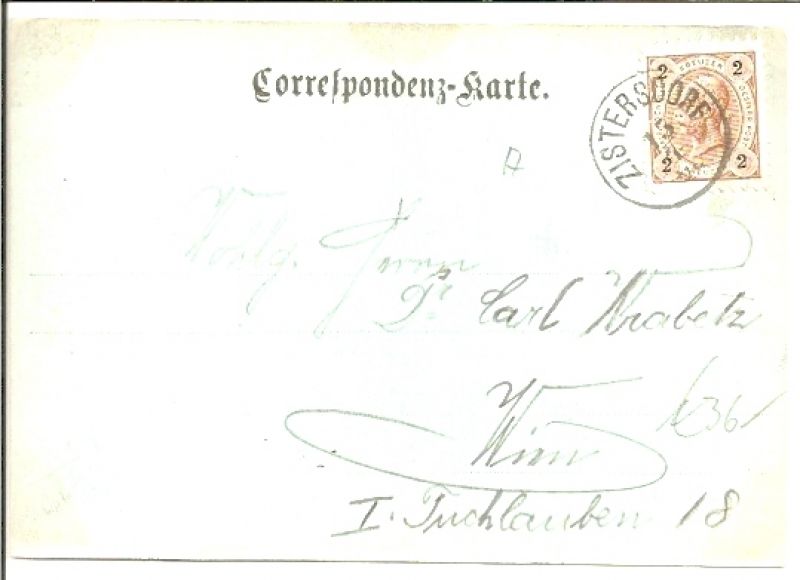 Correspondenz-Karte.
2 KREUZER 2
2 2
ZISTERSDORF
A
Wohlg. Herrn
Dr. Carl Wrabetz
Wien
I. Tuchlauben 18